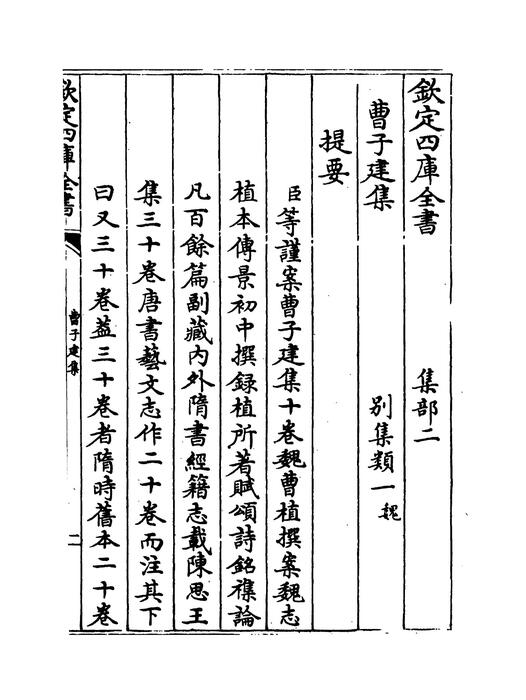 欽定四庫全書　集部二
曹子建集　別集類一魏
提要
臣等謹案曹子建集十卷魏曹植撰案魏志
植本傳景初中撰録植所著賦頌詩銘襍論
凡百餘篇副藏內外隋書經籍志載陳思王
集三十卷唐書藝文志作二十卷而注其下
曰又三十卷葢三十卷者隋時舊本二十卷
欽定四庫全書
曹子建集
二